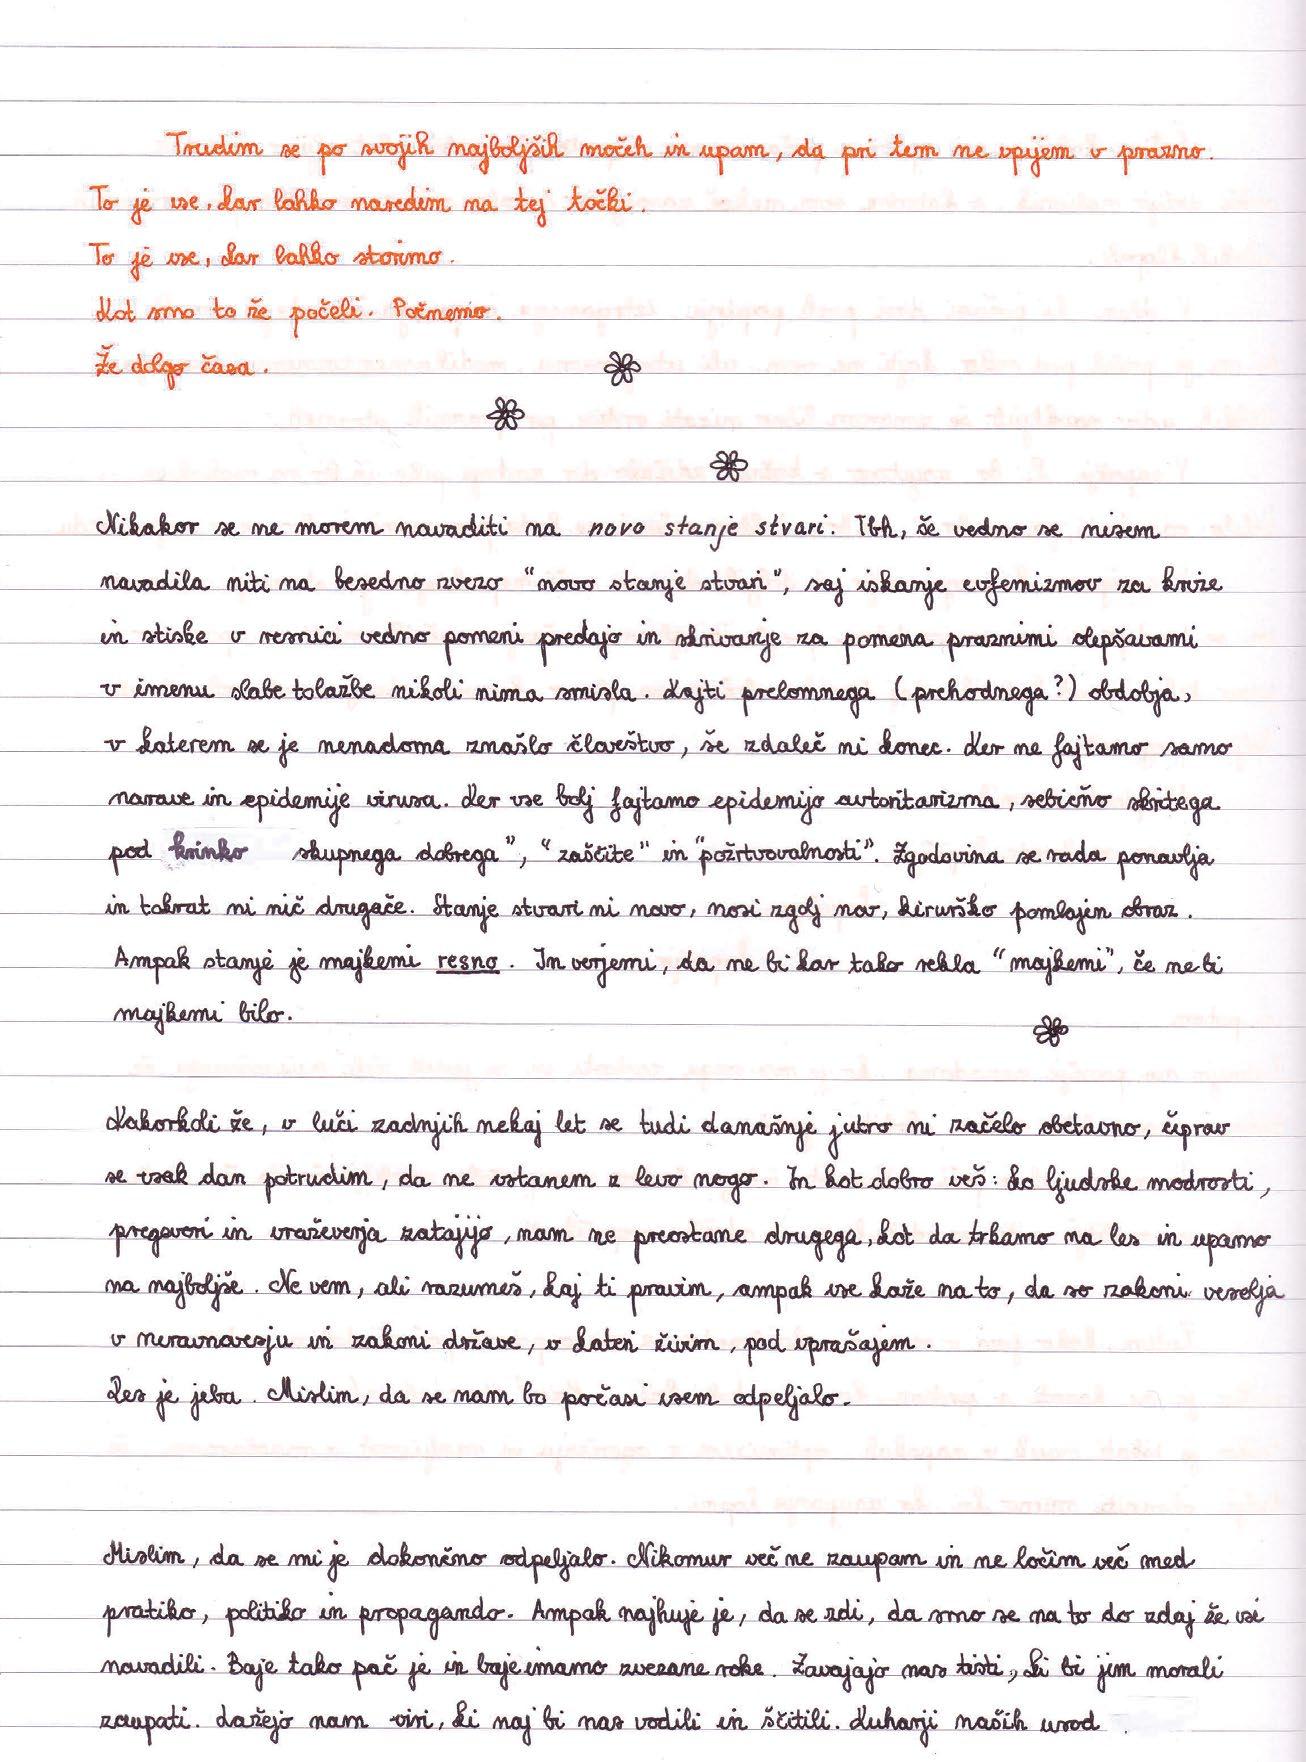 Trudim se po svojih najboljših močeh in upam, da pri tem ne vpijem v prazno.
To je vse, kar lahko naredim na tej točki.
To je vse, kar lahko storimo.
Kot smo to že počeli. Počnemo.
Že dolgo časa.
Nikakor se ne morem navaditi na novo stanje stvari. Tbh, še vedno se nisem
navadila niti na besedno zvezo "novo stanje stvari", saj iskanje evfemizmov za krize
in stiske v resnici vedno pomeni predajo in skrivanje za pomena praznimi olepšavami
v imenu slabe tolažbe nikoli nima smisla. Kajti prelomnega (prehodnega?) obdobja,
v katerem se je nenadoma znašlo človeštvo, še zdaleč ni konec. Ker ne fajtamo samo
narave in epidemije virusa. Ker vse bolj fajtamo epidemijo avtoritarizma, sebično skritega
pod krinko skupnega dobrega", "zaščite" in "požrtvovalnosti". Zgodovina se rada ponavlja
in tokrat ni nič drugače. Stanje stvari ni novo, nosi zgolj nov, kirurško pomlajen obraz.
Ampak stanje je majkemi resno. In verjemi, da ne bi kar tako rekla "majkemi", če ne bi
majkemi bilo.
Kakorkoli že, v luči zadnjih nekaj let se tudi današnje jutro ni začelo obetavno, čiprav
se vsak dan potrudim, da ne vstanem z levo nogo. In kot dobro veš: ko ljudske modrosti,
pregovori in vraževerja zatajijo, nam ne preostane drugega, kot da trkamo na les in upamo
na najboljše. Ne vem, ali razumeš, kaj ti pravim, ampak vse kaže na to, da so zakoni veselja
v neravnovesju in zakoni države, v kateri živim, pod vprašajem.
Res je jeba. Mislim, da se nam bo počasi vsem odpeljalo.
Mislim, da se mi je dokončno odpeljalo. Nikomur več ne zaupam in ne ločim več med
pratiko, politiko in propagando. Ampak najhuje je, da se zdi, da smo se na to do zdaj že vsi
navadili. Baje tako pač je in baje imamo zvezane roke. Zavajajo nas tisti, ki bi jim morali
zaupati. Lažejo nam viri, ki naj bi nas vodili in ščitili. Kuharji naših usod.